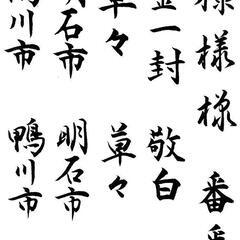 様様様 番番
金一封 敬白
草々 草々
明石市 明石市
鴨川市 鴨川市